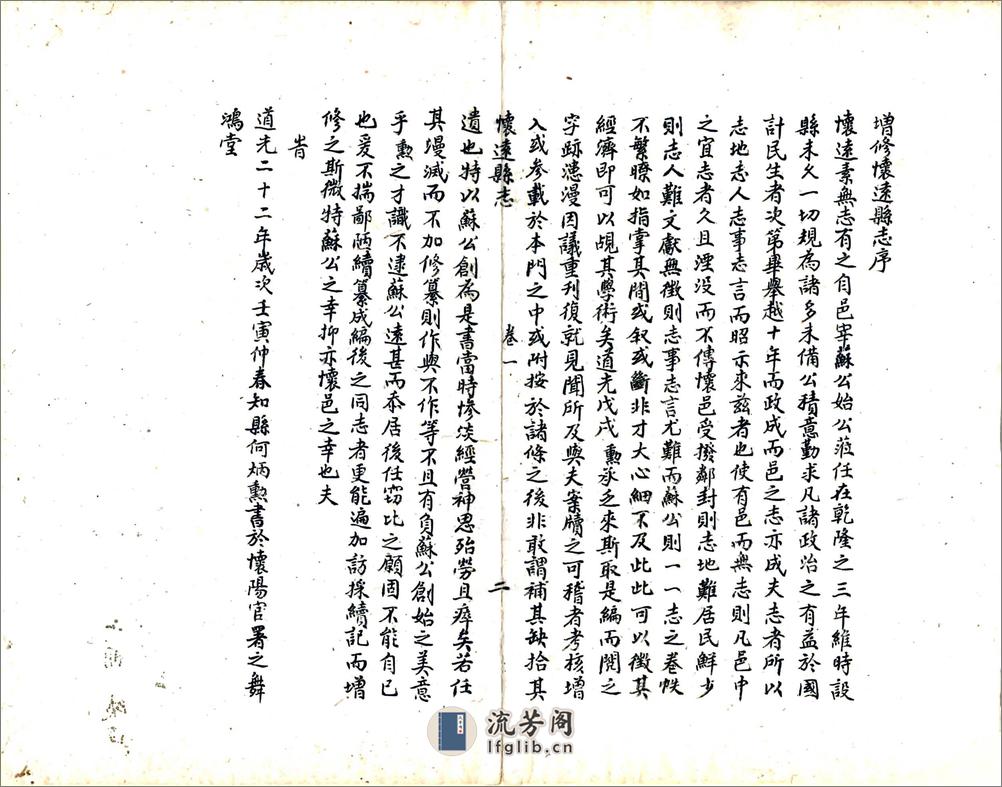 增修懷遠縣志序
懷遠素無志有之自邑宰蘇公始公蒞任在乾隆之三年維時設
縣未久一切規為諸多未備公積意勤求凡諸政治之有益於國
計民生者次第畢舉越十年而政成而邑之志亦成夫志者所以
志地志人志事志言而昭示來茲者也使有邑而無志則凡邑中
之宜志者久且湮没而不傳懷邑受撥鄰封則志地難居民鮮少
則志人難文獻無徵則志事志言尤難而蘇公則一一志之卷帙
不繁瞭如指掌其間或叙或斷非才大心細不及此此可以徵其
經濟即可以覘其學術矣道光戊戌勳承乏來斯取是編而閱之
字跡漶漫因議重刊復就見聞所及與夫案牘之可稽者考核增
入或參載於本門之中或附按於諸條之後非敢謂補其缺拾其
懷遠縣志 卷一 二
遺也特以蘇公創為是書當時慘淡經營神思殆勞且瘁矣若任
其墁滅而不加修纂則作與不作等不且有負蘇公創始之美意
乎勳之才識不逮蘇公遠甚而忝居後任竊比之顧因不能自已
也爰不揣鄙陋續纂成編後之同志者更能遍加訪採續記而增
修之斯微特蘇公之幸抑亦懷邑之幸也夫
峕
道光二十二年歲次壬寅仲春知縣何炳勳書於懷陽官署之舞
鴻堂
流芳阁
lfglib.cn